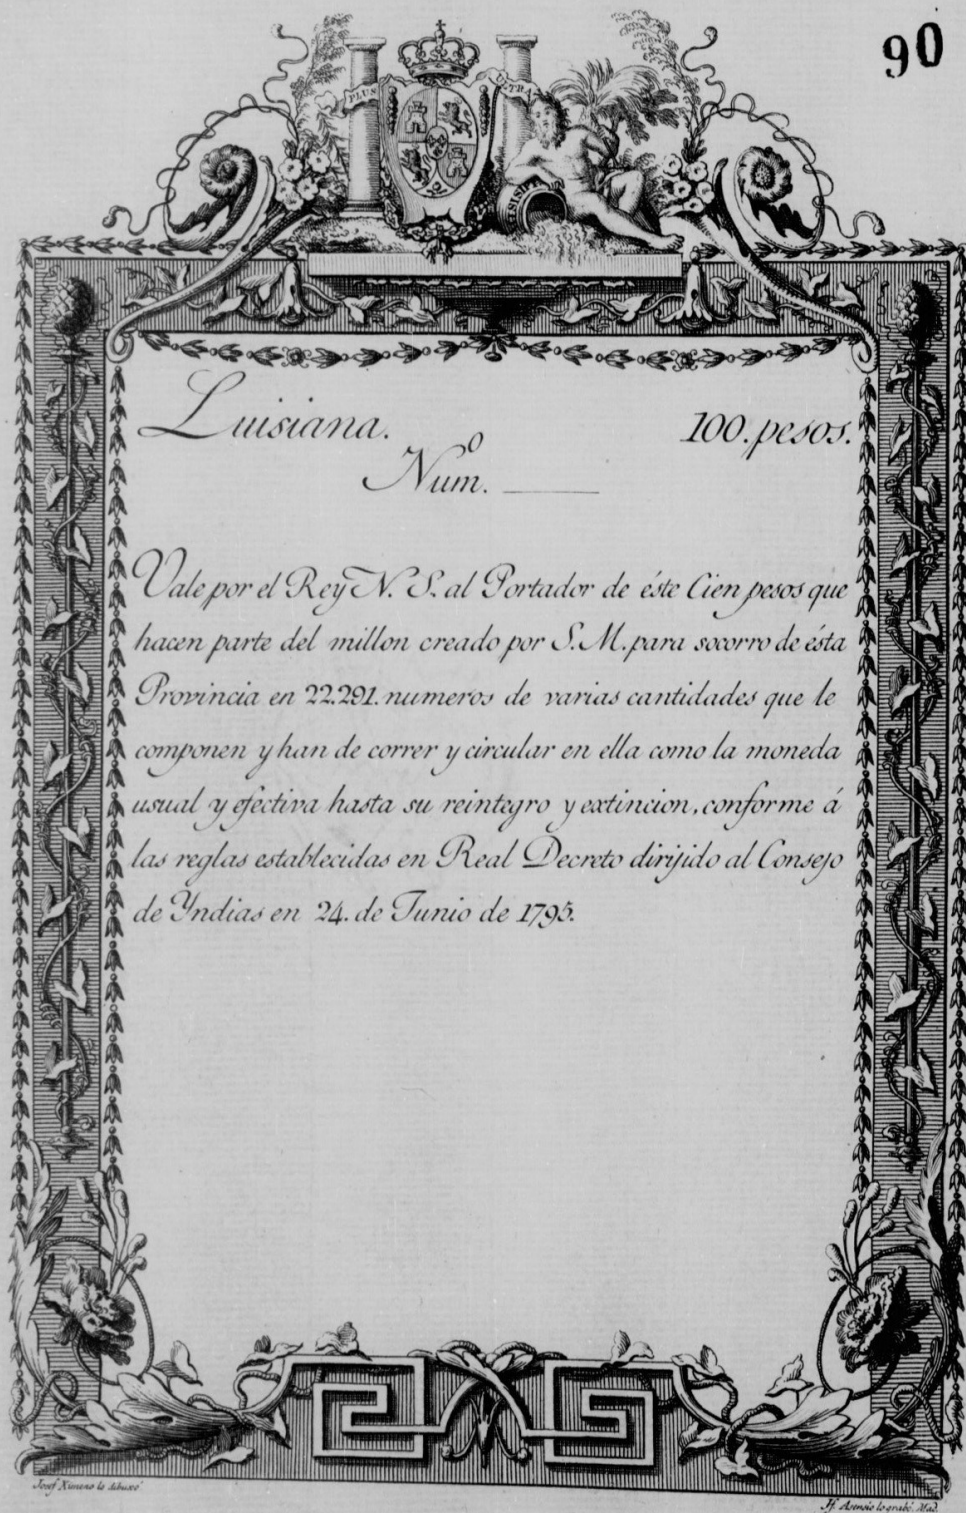 90
PLUS ULTRA
MISISIPI
Luisiana. 100. pesos.
Num.º
Vale por el Rey N. S. al Portador de éste Cien pesos que
hacen parte del millon creado por S. M. para socorro de ésta
Provincia en 22.291. numeros de varias cantidades que le
componen y han de correr y circular en ella como la moneda
usual y efectiva hasta su reintegro y extincion, conforme á
las reglas establecidas en Real Decreto dirijido al Consejo
de Yndias en 24. de Junio de 1795.
Josef Ximeno lo dibuxó
Jf. Asensio lo grabó. Mad.